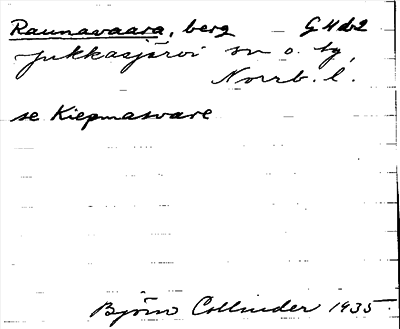 Raunavaara, berg G4d2
Jukkasjärvi sn o. tg,
Norrb. l.
se Kiepmasvare
Björn Collinder 1935.